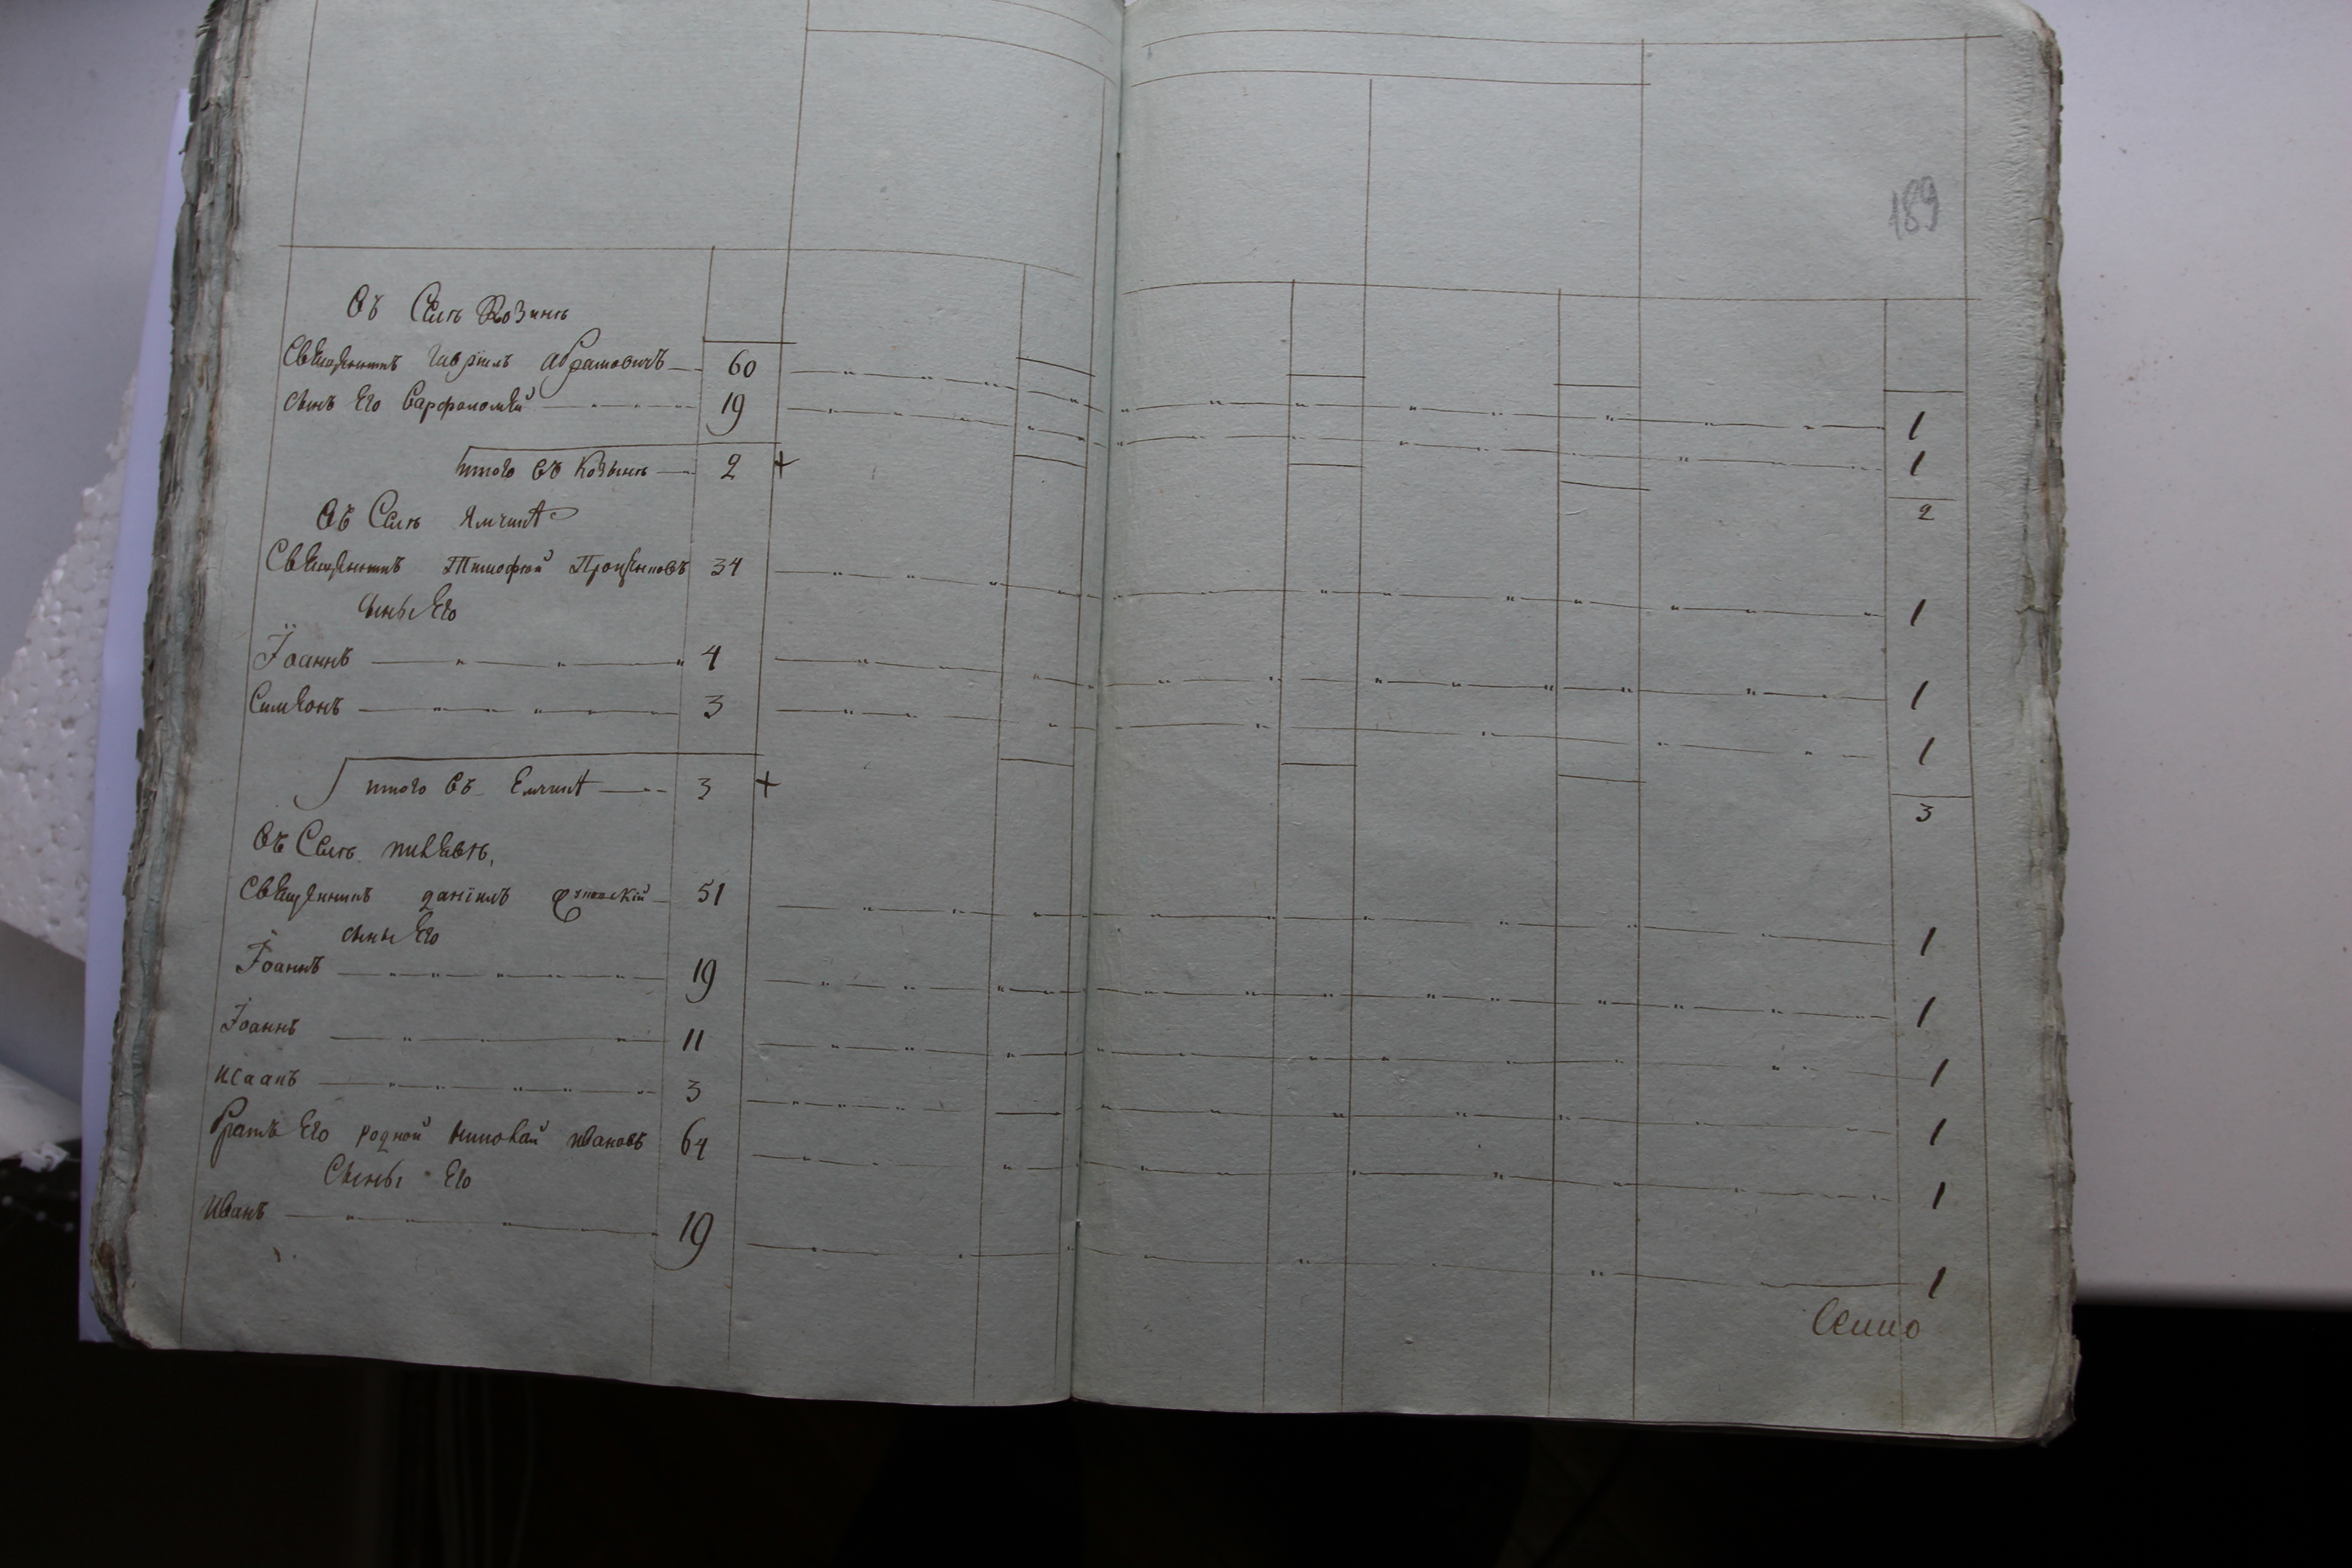 189
Въ Селѣ Козинѣ
Священникъ Гавріилъ Абрамовичъ 60 1
сынъ Его Варфоломей 19 1
итого въ Козынѣ 2 + 2
Въ Селѣ Ямчинѣ
Священникъ Тимофей Проценковъ 34 1
сыны Его
Іоаннъ 4 1
Симеонъ 3 1
итого въ Емчинѣ 3 + 3
Въ Селѣ пивцахъ
Священникъ даніилъ 51 1
сыны Его
Іоаннъ 19 1
Іоаннъ 11 1
Исаакъ 3 1
братъ Его родной Николай Ивановъ 64 1
Сыны Его
Иванъ 19 1